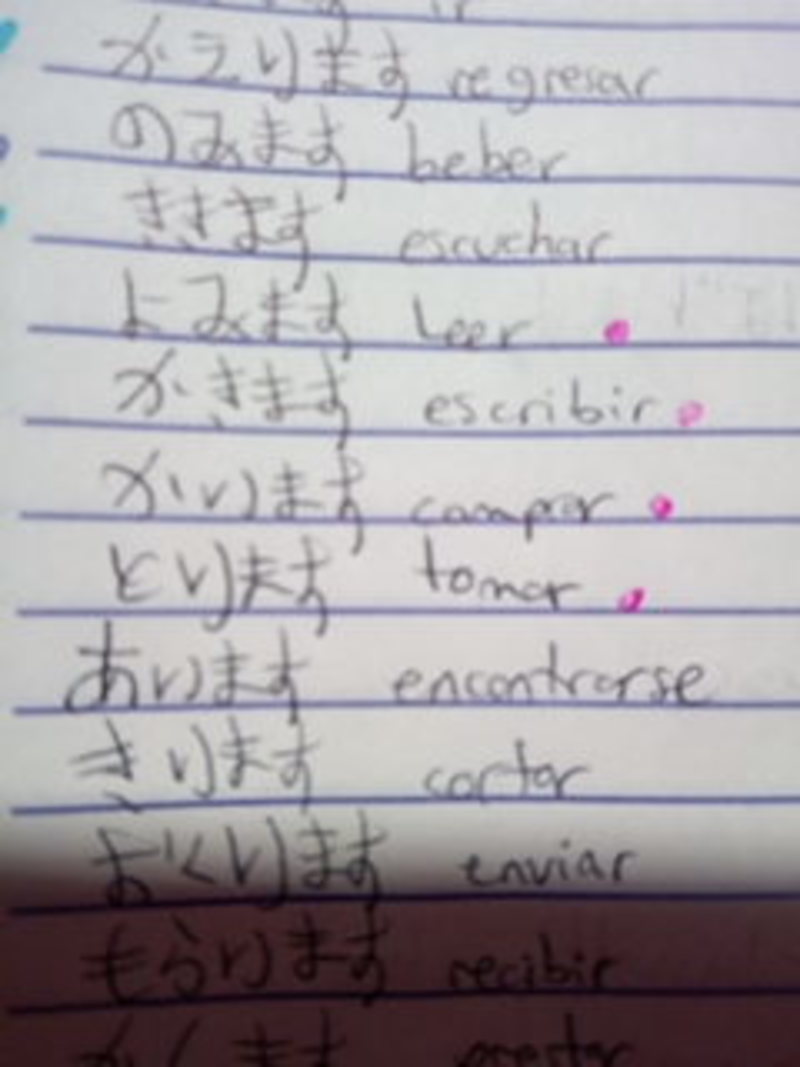 ir
かえります regresar
のみます beber
ききます escuchar
よみます leer
かきます escribir
かいます comprar
とります tomar
あいます encontrarse
きります cortar
おくります enviar
もらいます recibir
かします prestar